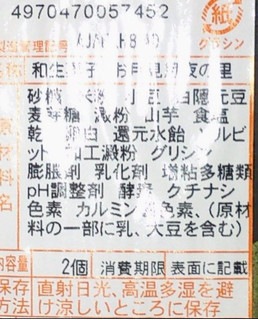 4970470057452
紙
製造管理記号
グラシン
名称 和生菓子 お月見 夜の里
砂糖 小豆 白隠元豆
麦芽糖 澱粉 山芋 食塩
卵白 還元水飴 ソルビ
ット 加工澱粉 グリシン
膨脹剤 乳化剤 増粘多糖類
pH調整剤 酵素 クチナシ
色素 カルミン色素、(原材
料の一部に乳、大豆を含む)
原材料
内容量 2個 消費期限 表面に記載
保存方法 直射日光、高温多湿を避
け涼しいところに保存